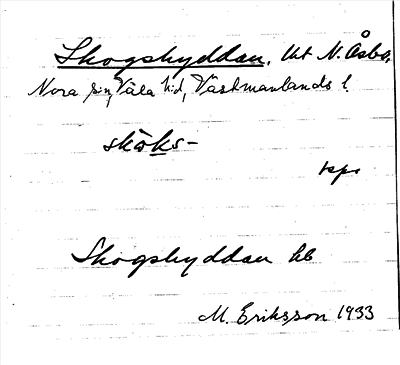 Skogshyddan, lht N. Åsbo,
Nora sn, Våla hd, Västmanlands l.
skoks-
tspr
Skogshyddan lb
M. Eriksson 1933